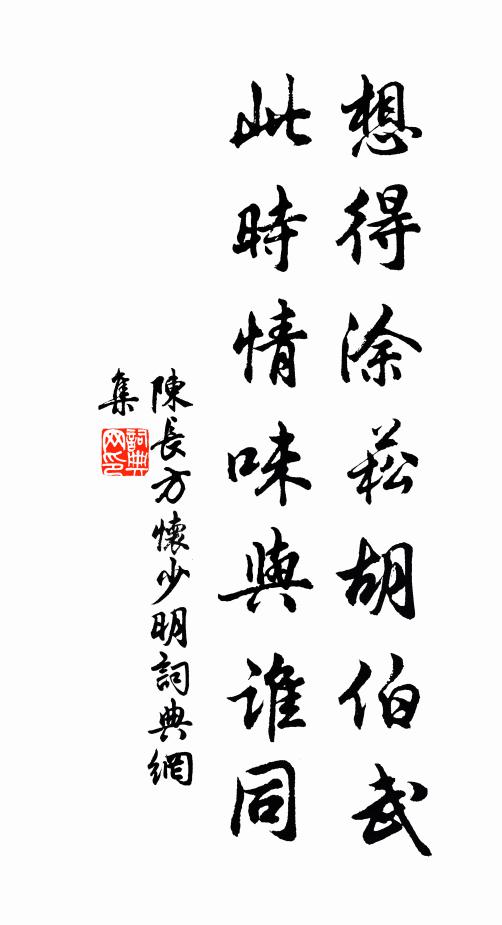 想得涂菘胡伯武
此時情味與誰同
陳長方懷少明詞典網
集
詞典网印